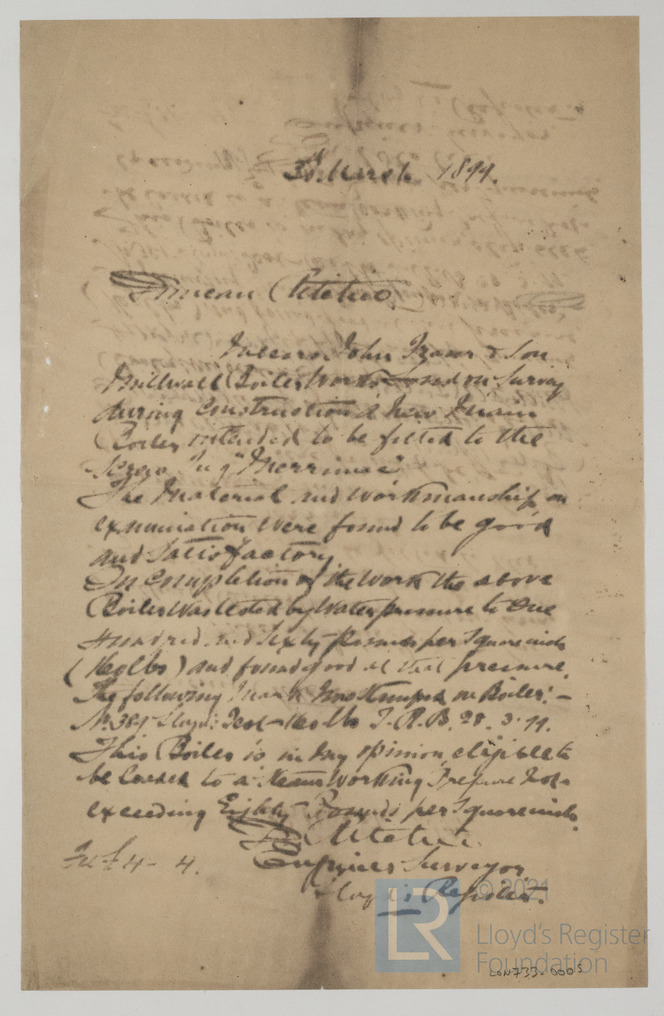 March 1899.
John Fraser & Son
Millwall Boiler Works London Survey
during construction a New Main
Boiler intended to be fitted to the
Tug "Merrimac"
The Material and Workmanship on
examination were found to be good
and Satisfactory
On Completion of the Work the above
Boiler Was tested by Water pressure to One
Hundred and Sixty pounds per Square inch
(160 lbs) and found good at that pressure.
The following Mark Was Stamped on Boiler:-
No. Lloyds Test 160 lbs 28.3.99.
This Boiler is in my opinion eligible to
be loaded to a Steam Working Pressure Not
exceeding Eighty Pounds per Square inch.
Engineer Surveyor
Lloyd's Register.
4-4.
© 2021
LR
Lloyd's Register
Foundation
LON733.0005